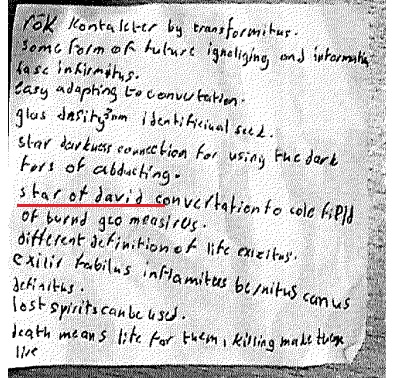 rök kontakter by transformitus.
some form of future ignoliging and informatin
fasc infirmitus.
easy adapting to convertation.
glas dnsity 3nm identificiual seed.
star darkness connection for using the dark
fors of abducting.
star of david convertation to cole field
of burnd geo measirus.
different definition of life exizitus.
exilir tabilus inflamitus bernitus canus
definitus.
lost spirits can be used.
death means life for them, killing made them
live